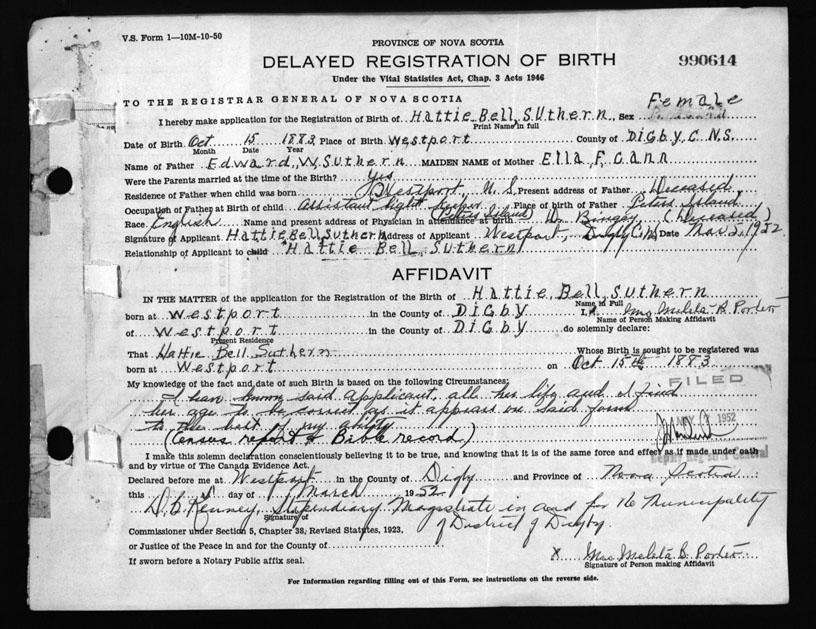 V.S. Form 1—10M-10-50
PROVINCE OF NOVA SCOTIA
DELAYED REGISTRATION OF BIRTH
990614
Under the Vital Statistics Act, Chap. 3 Acts 1946
TO THE REGISTRAR GENERAL OF NOVA SCOTIA
I hereby make application for the Registration of Birth of Hattie Bell Suthern Sex Female
Print Name in full
Date of Birth Oct 15 1883 Place of Birth Westport County of DIGBY, C. N.S.
Month Date Year
Name of Father Edward W. Suthern MAIDEN NAME of Mother Ella F. Cann
Were the Parents married at the time of the Birth? Yes
Residence of Father when child was born Westport, N.S. Present address of Father Deceased
Occupation of Father at Birth of child Assistant Light Keeper Place of birth of Father Peters Island
(Peters Island)
Race English Name and present address of Physician in attendance at birth Dr. (Deceased)
Signature of Applicant Hattie Bell Suthern Address of Applicant Westport, Digby Co. N.S. Date Mar 2, 1952
Relationship of Applicant to child Hattie Bell Suthern
AFFIDAVIT
IN THE MATTER of the application for the Registration of the Birth of Hattie Bell Suthern
Name in Full
born at Westport in the County of DIGBY I, Mrs B. Porter
Name of Person Making Affidavit
of Westport in the County of DIGBY do solemnly declare:
Present Residence
That Hattie Bell Suthern Whose Birth is sought to be registered was
born at Westport on Oct 15th 1883
My knowledge of the fact and date of such Birth is based on the following Circumstances:
I have known said applicant all her life and I find
her age to be correct as it appears on said form
to the best of my ability
(Census report & Bible record)
FILED
MAY 1952
Deputy Registrar General
I make this solemn declaration conscientiously believing it to be true, and knowing that it is of the same force and effect as if made under oath
and by virtue of The Canada Evidence Act.
Declared before me at Westport in the County of Digby and Province of Nova Scotia
this day of March 1952
D. B. Kenney, Stipendiary Magistrate in and for the Municipality
of District of Digby.
Signature of
Commissioner under Section 5, Chapter 38, Revised Statutes, 1923,
or Justice of the Peace in and for the County of
x Mrs B. Porter
Signature of Person making Affidavit
If sworn before a Notary Public affix seal.
For Information regarding filling out of this Form, see instructions on the reverse side.